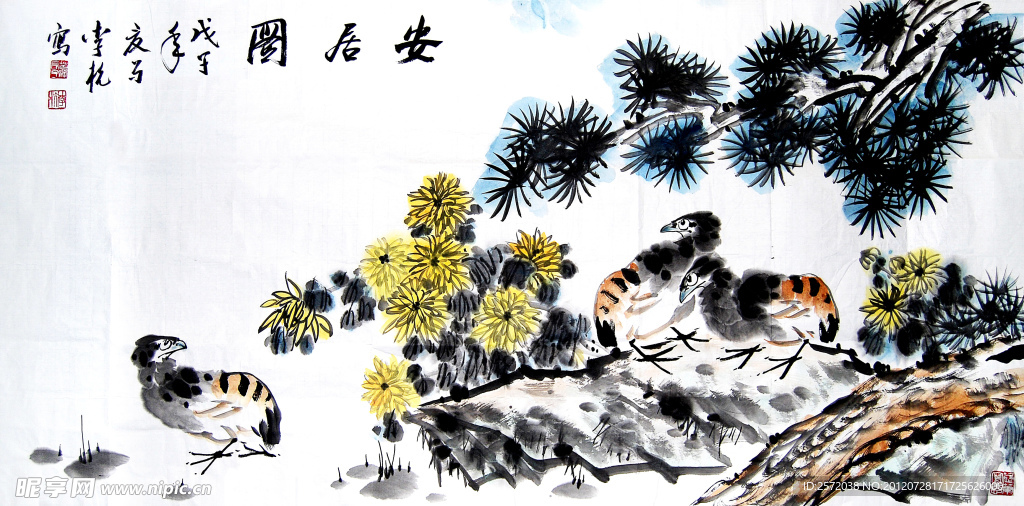 安居图
戊子
年
夏月
李杭
寫
昵享网 www.nipic.cn
ID:2572038 NO:20120728171725626000